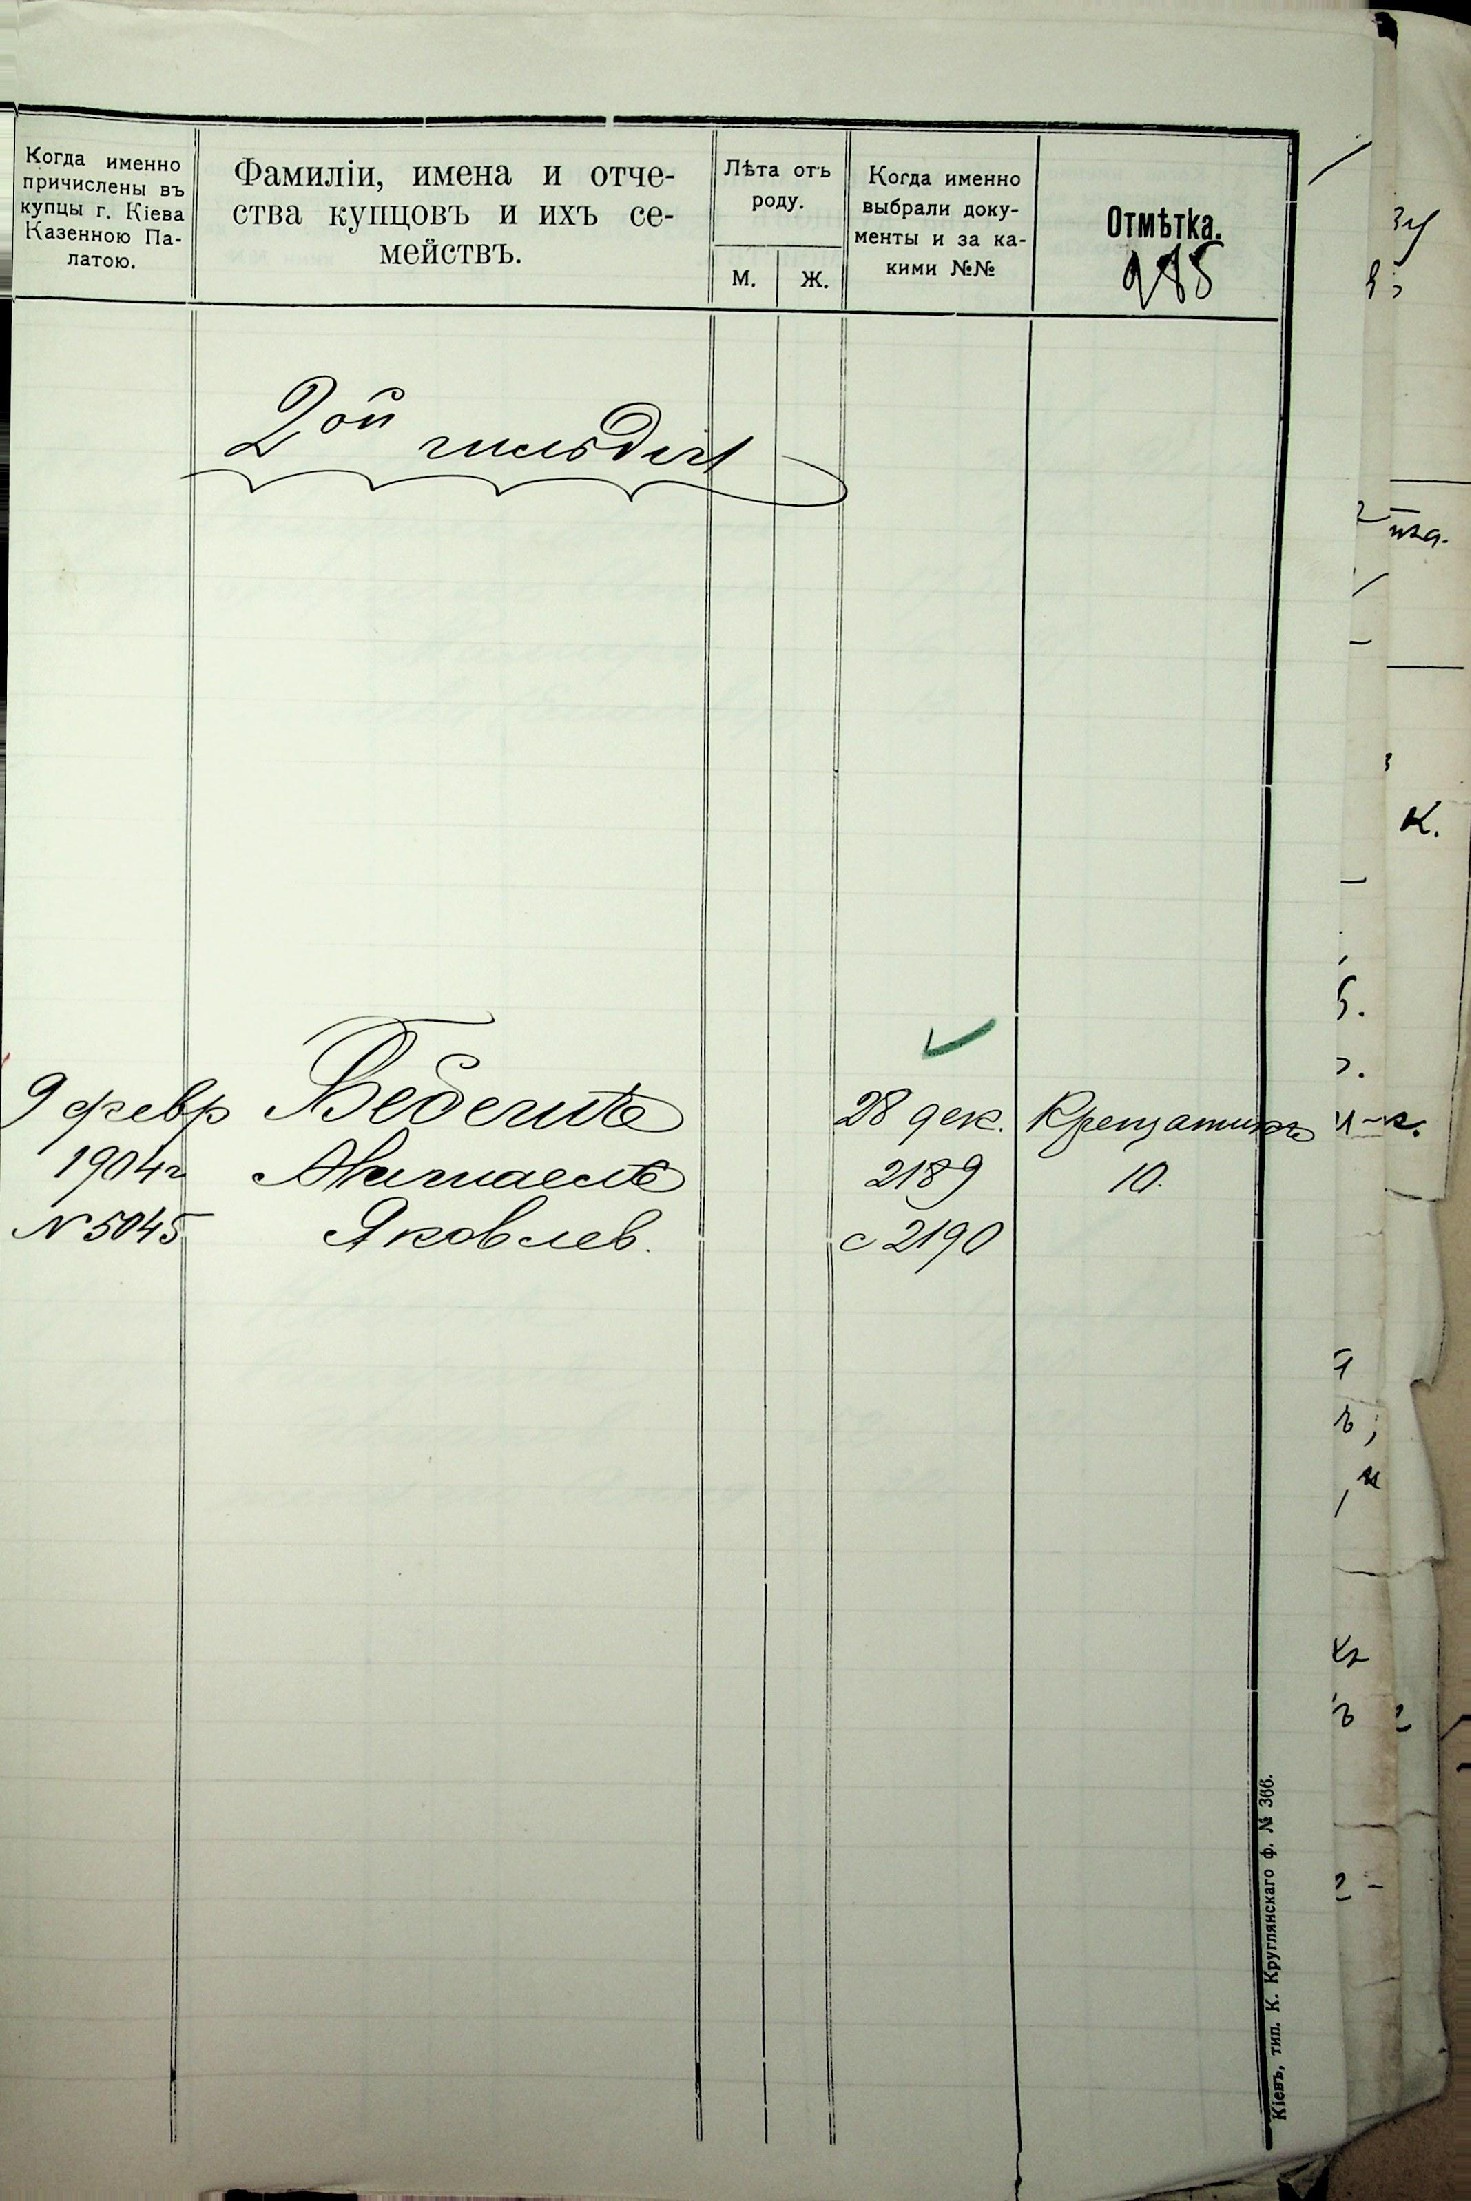 Когда именно
причислены въ
купцы г. Кіева
Казенною Па-
латою.
Фамиліи, имена и отче-
ства купцовъ и ихъ се-
мействъ.
Лѣта отъ
роду.
М. Ж.
Когда именно
выбрали доку-
менты и за ка-
кими №№
Отмѣтка.
2ой гильдіи
9 февр
1904 г
N 5045
Яковлев.
28 дек.
2189
с 2190
Крещатикъ
10.
Кіевъ, тип. К. Круглянскаго ф. № 366.